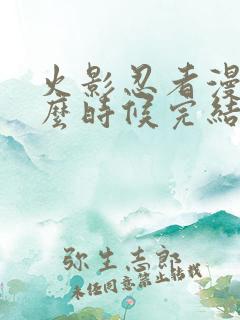 火影忍者漫
麼時候完結
弥生志郎
未经同意禁止转载